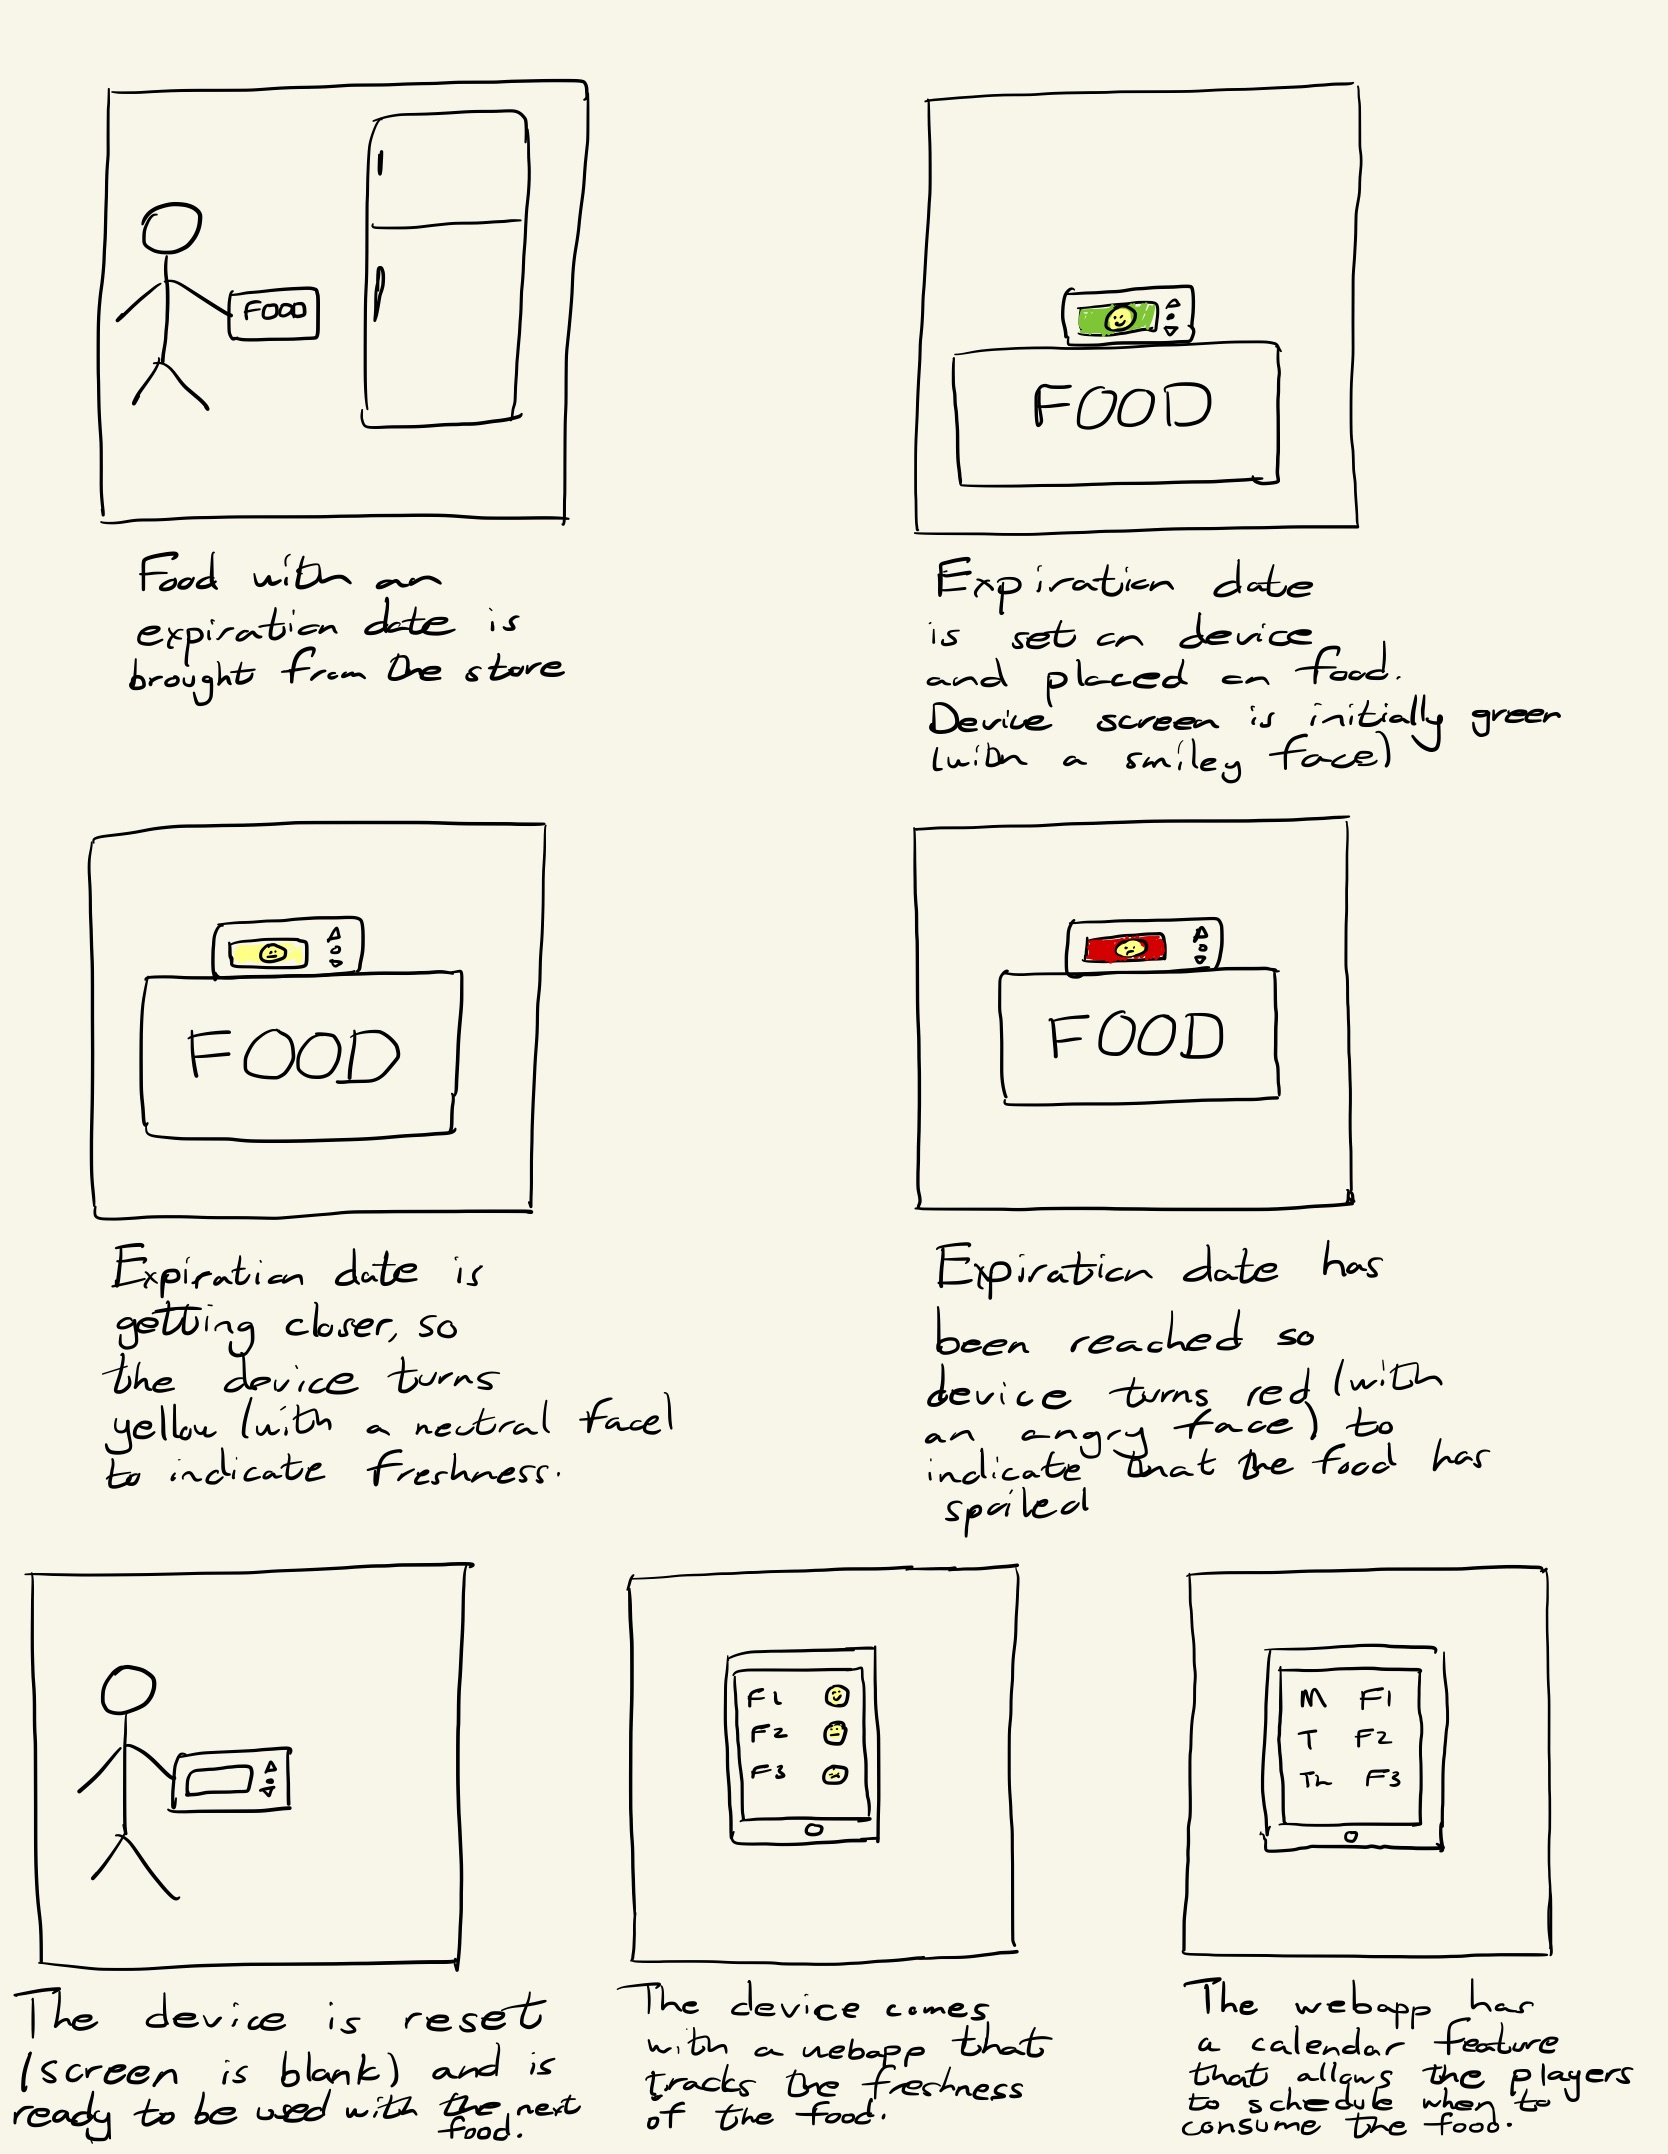 FOOD
Food with an
expiration date is
brought from the store
FOOD
Expiration date
is set on device
and placed on food.
Device screen is initially green
(with a smiley face)
FOOD
Expiration date is
getting closer, so
the device turns
yellow (with a neutral face)
to indicate freshness.
FOOD
Expiration date has
been reached so
device turns red (with
an angry face) to
indicate that the food has
spoiled
The device is reset
(screen is blank) and is
ready to be used with the next
food.
F1
F2
F3
The device comes
with a webapp that
tracks the freshness
of the food.
M F1
T F2
Th F3
The webapp has
a calendar feature
that allows the players
to schedule when to
consume the food.